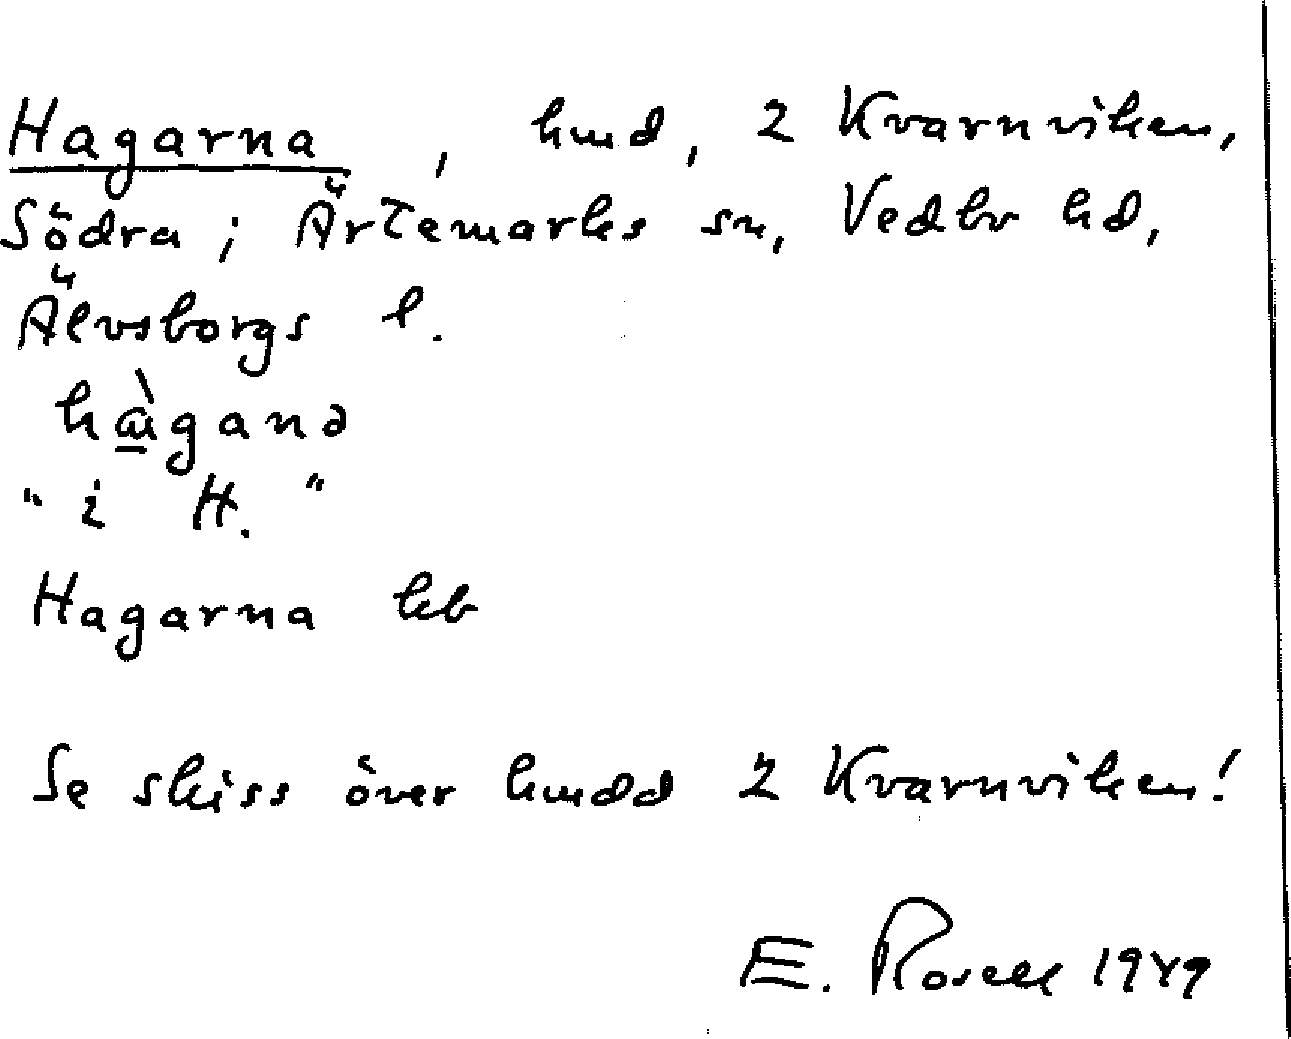 Hagarna, hmd, 2 Kvarnviken,
Södra; Ärtemarks sn, Vedbo hd,
Älvsborgs l.
hɑ̀ganə
"i H."
Hagarna kb
Se skiss över hmdd 2 Kvarnviken!
E. Rosell 1949